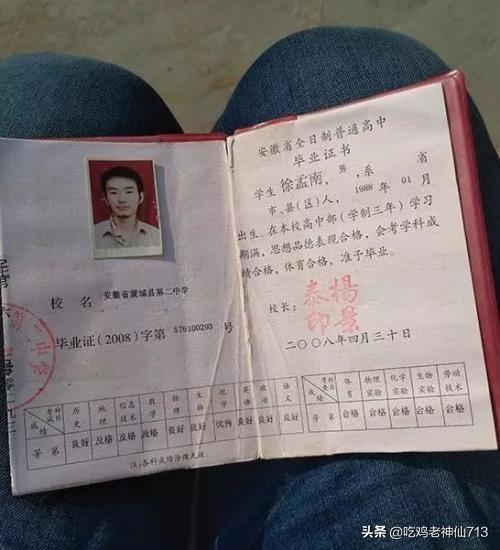 校 名 安徽省蒙城县第二中学
毕业证(2008)字第 576100293 号
考查科目 历史 地理 信息技术 数学 物理 生物 化学 英语 政治 语文
成绩等第 良好 及格 及格 及格 良好 良好 优秀 良好 良好 良好
注:各科成绩涂改无效。
安徽省全日制普通高中
毕业证书
学生 徐孟南, 男, 系 省
市、县(区)人, 1988 年 01 月
出生。在本校高中部(学制三年)学习
期满,思想品德表现合格,会考学科成
绩合格,体育合格,准予毕业。
校长:
二〇〇八年四月三十日
体育 物理实验 化学实验 生物实验 劳动技术
等 第 合格 合格 合格 合格 合格
头条 @吃鸡老神仙713